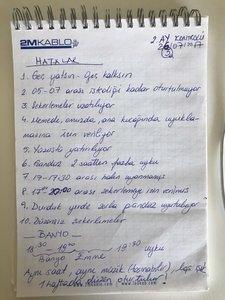 2M KABLO
2. AY KONTROLÜ
26/07/2017
HATALAR
1. Geç yatsın - Geç kalksın
2. 05-07 arası isteliği kadar oturtulmuyor
3. Şekerlemeler uzatılıyor
4. Memede, omuzda, ana kucağında uyukla-
masına izin veriliyor
5. Yüzüstü yatırılıyor
6. Gündüz 2 saatten fazla uyku
7. 17-17:30 arası halen uyanmamış
8. 17:00 20:00 arası şekerlemeye izin verilmiş
9. Dünduk yerde gündüz uyutuluyor
10. Düzensiz şekerlemeler
BANYO
18:30 - 19:00 19:30 uyku
Banyo Emme
Aynı saat, aynı müzik
1 haftadan düzen oturtulur!